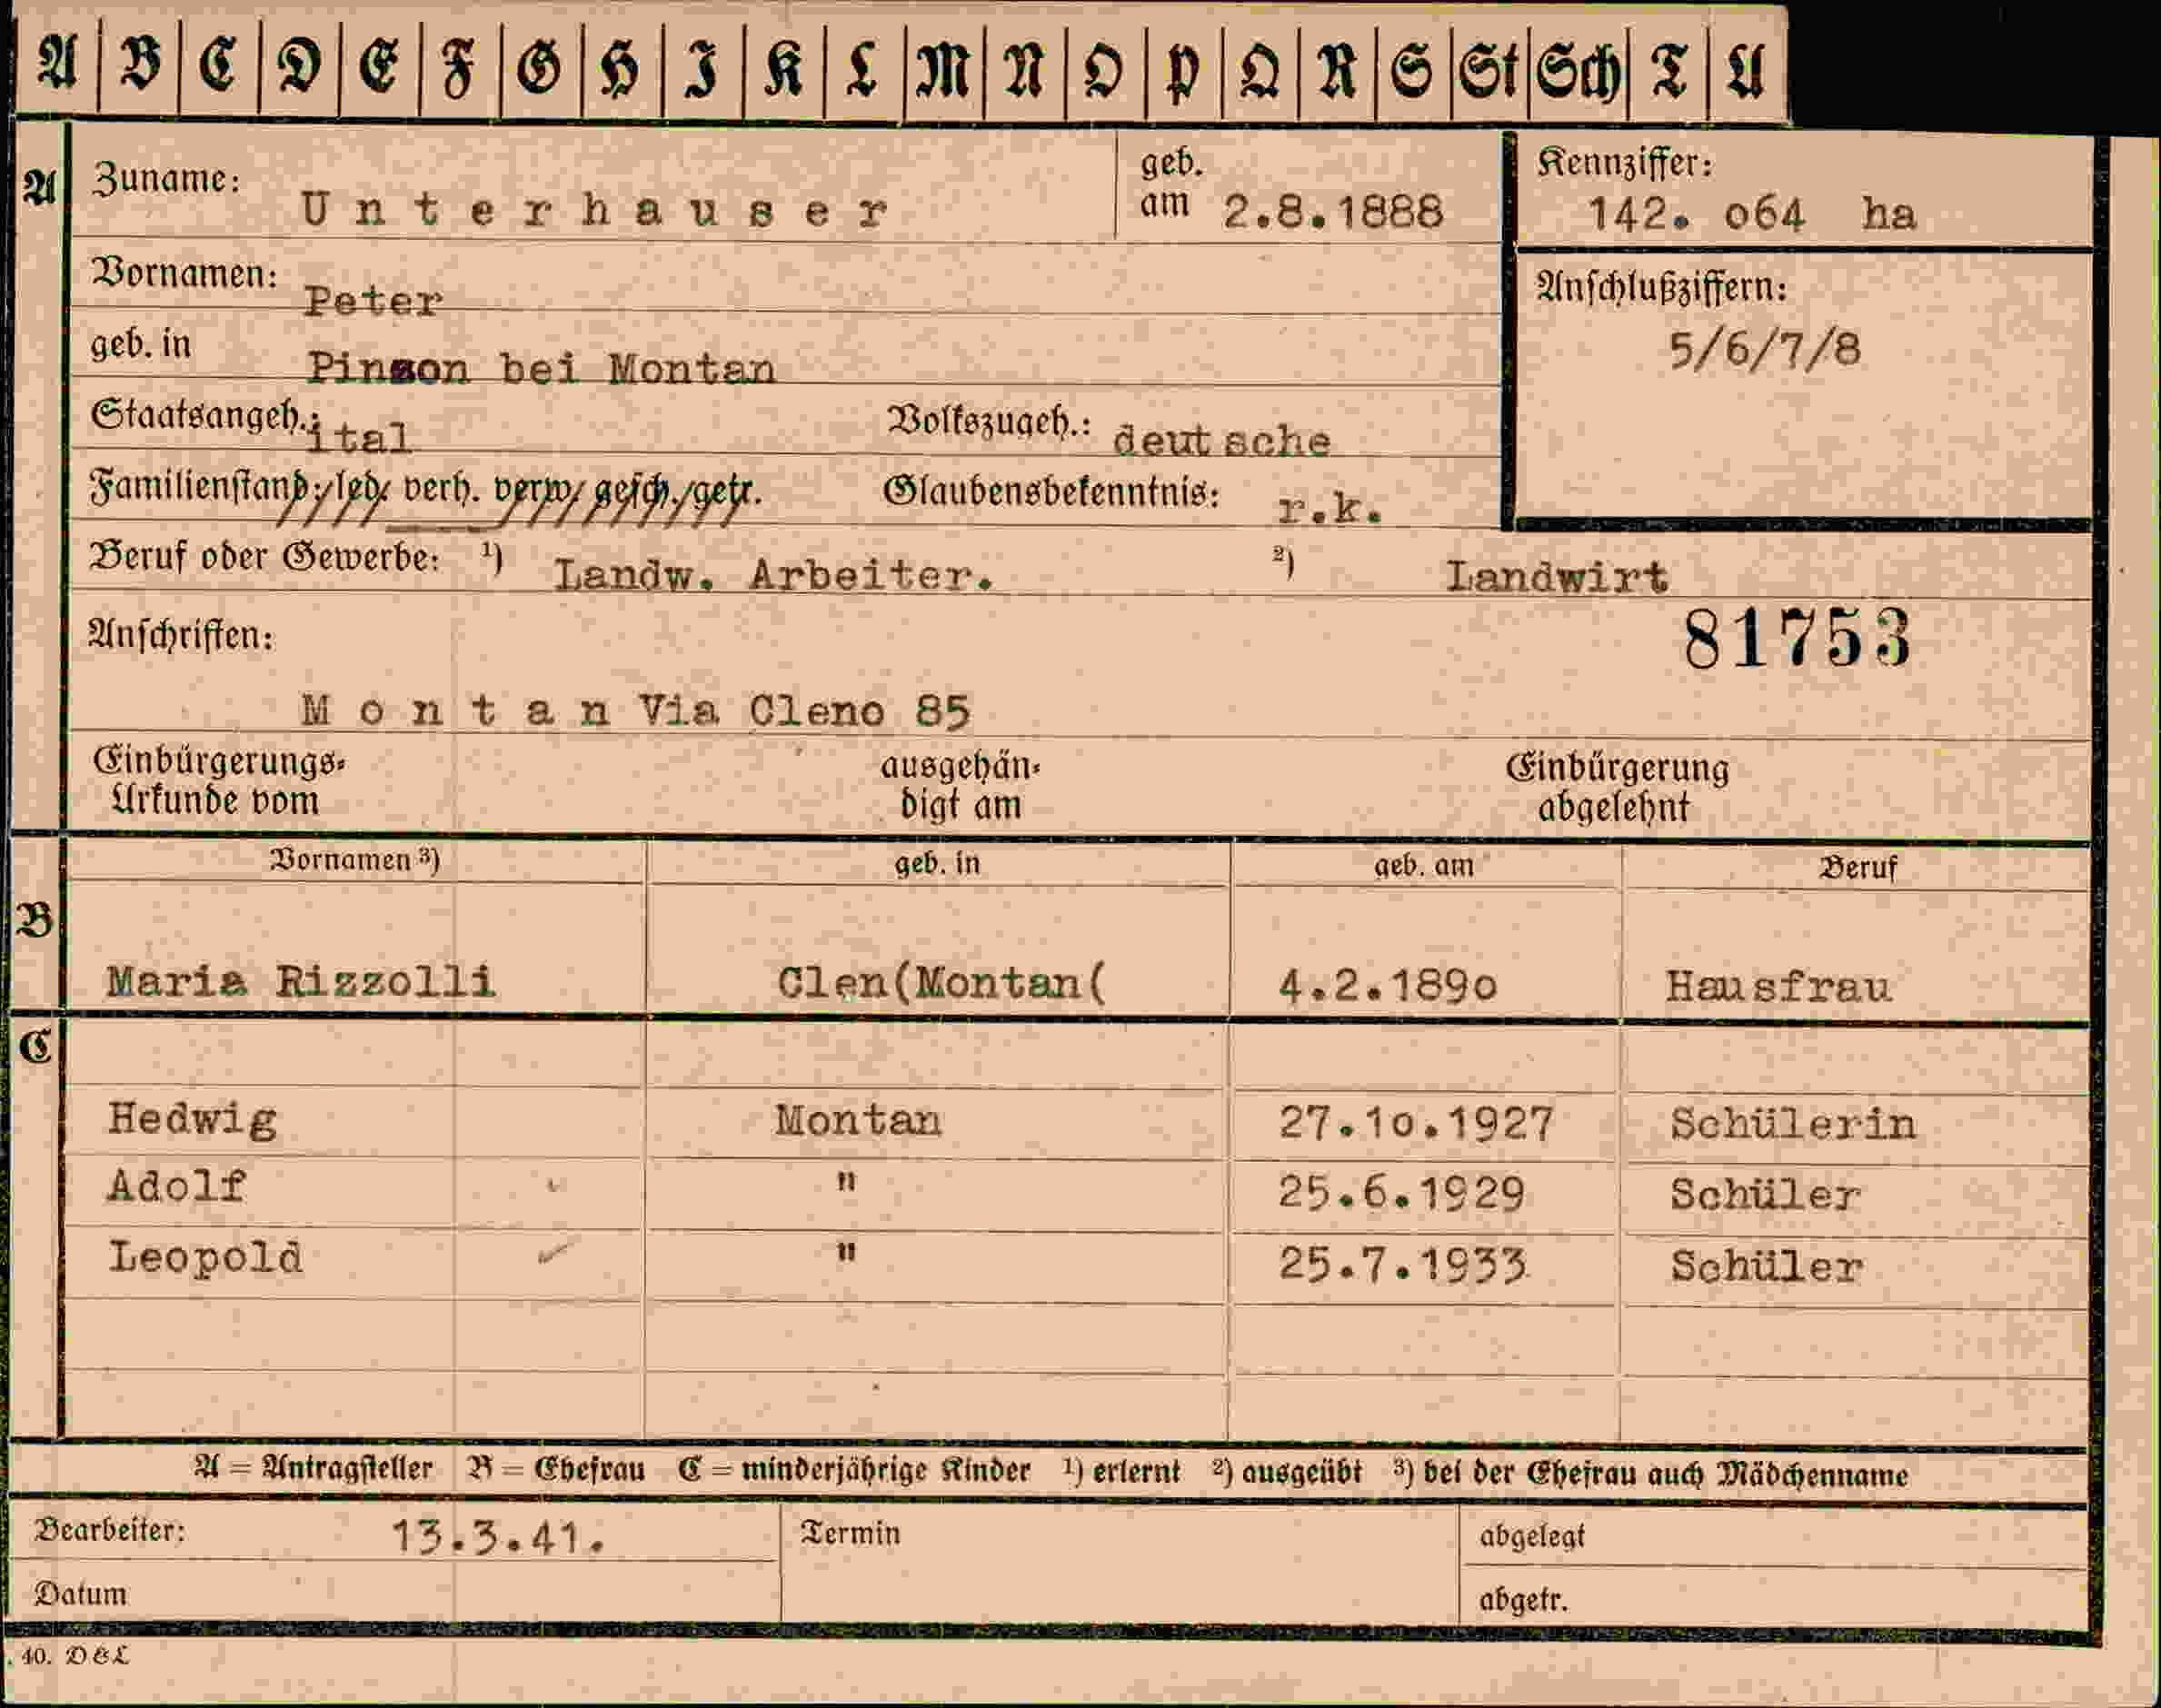 A B C D E F G H I K L M N O P Q R S St Sch T U
A Zuname: Unterhauser geb. am 2.8.1888 Kennziffer: 142. o64 ha
Vornamen: Peter Anschlußziffern:
geb. in Pinson bei Montan 5/6/7/8
Staatsangeh.: ital Volkszugeh.: deutsche
Familienstand: led. verh. verw. gesch. getr. Glaubensbekenntnis: r.k.
Beruf oder Gewerbe: 1) Landw. Arbeiter. 2) Landwirt
Anschriften: 81753
Montan Via Cleno 85
Einbürgerungs- ausgehän- Einbürgerung
Urkunde vom digt am abgelehnt
Vornamen 3) geb. in geb. am Beruf
B
Maria Rizzolli Clen(Montan( 4.2.189o Hausfrau
C
Hedwig Montan 27.1o.1927 Schülerin
Adolf " 25.6.1929 Schüler
Leopold " 25.7.1933 Schüler
A = Antragsteller B = Ehefrau C = minderjährige Kinder 1) erlernt 2) ausgeübt 3) bei der Ehefrau auch Mädchenname
Bearbeiter: 13.3.41. Termin abgelegt
Datum abgetr.
. 40. D&L